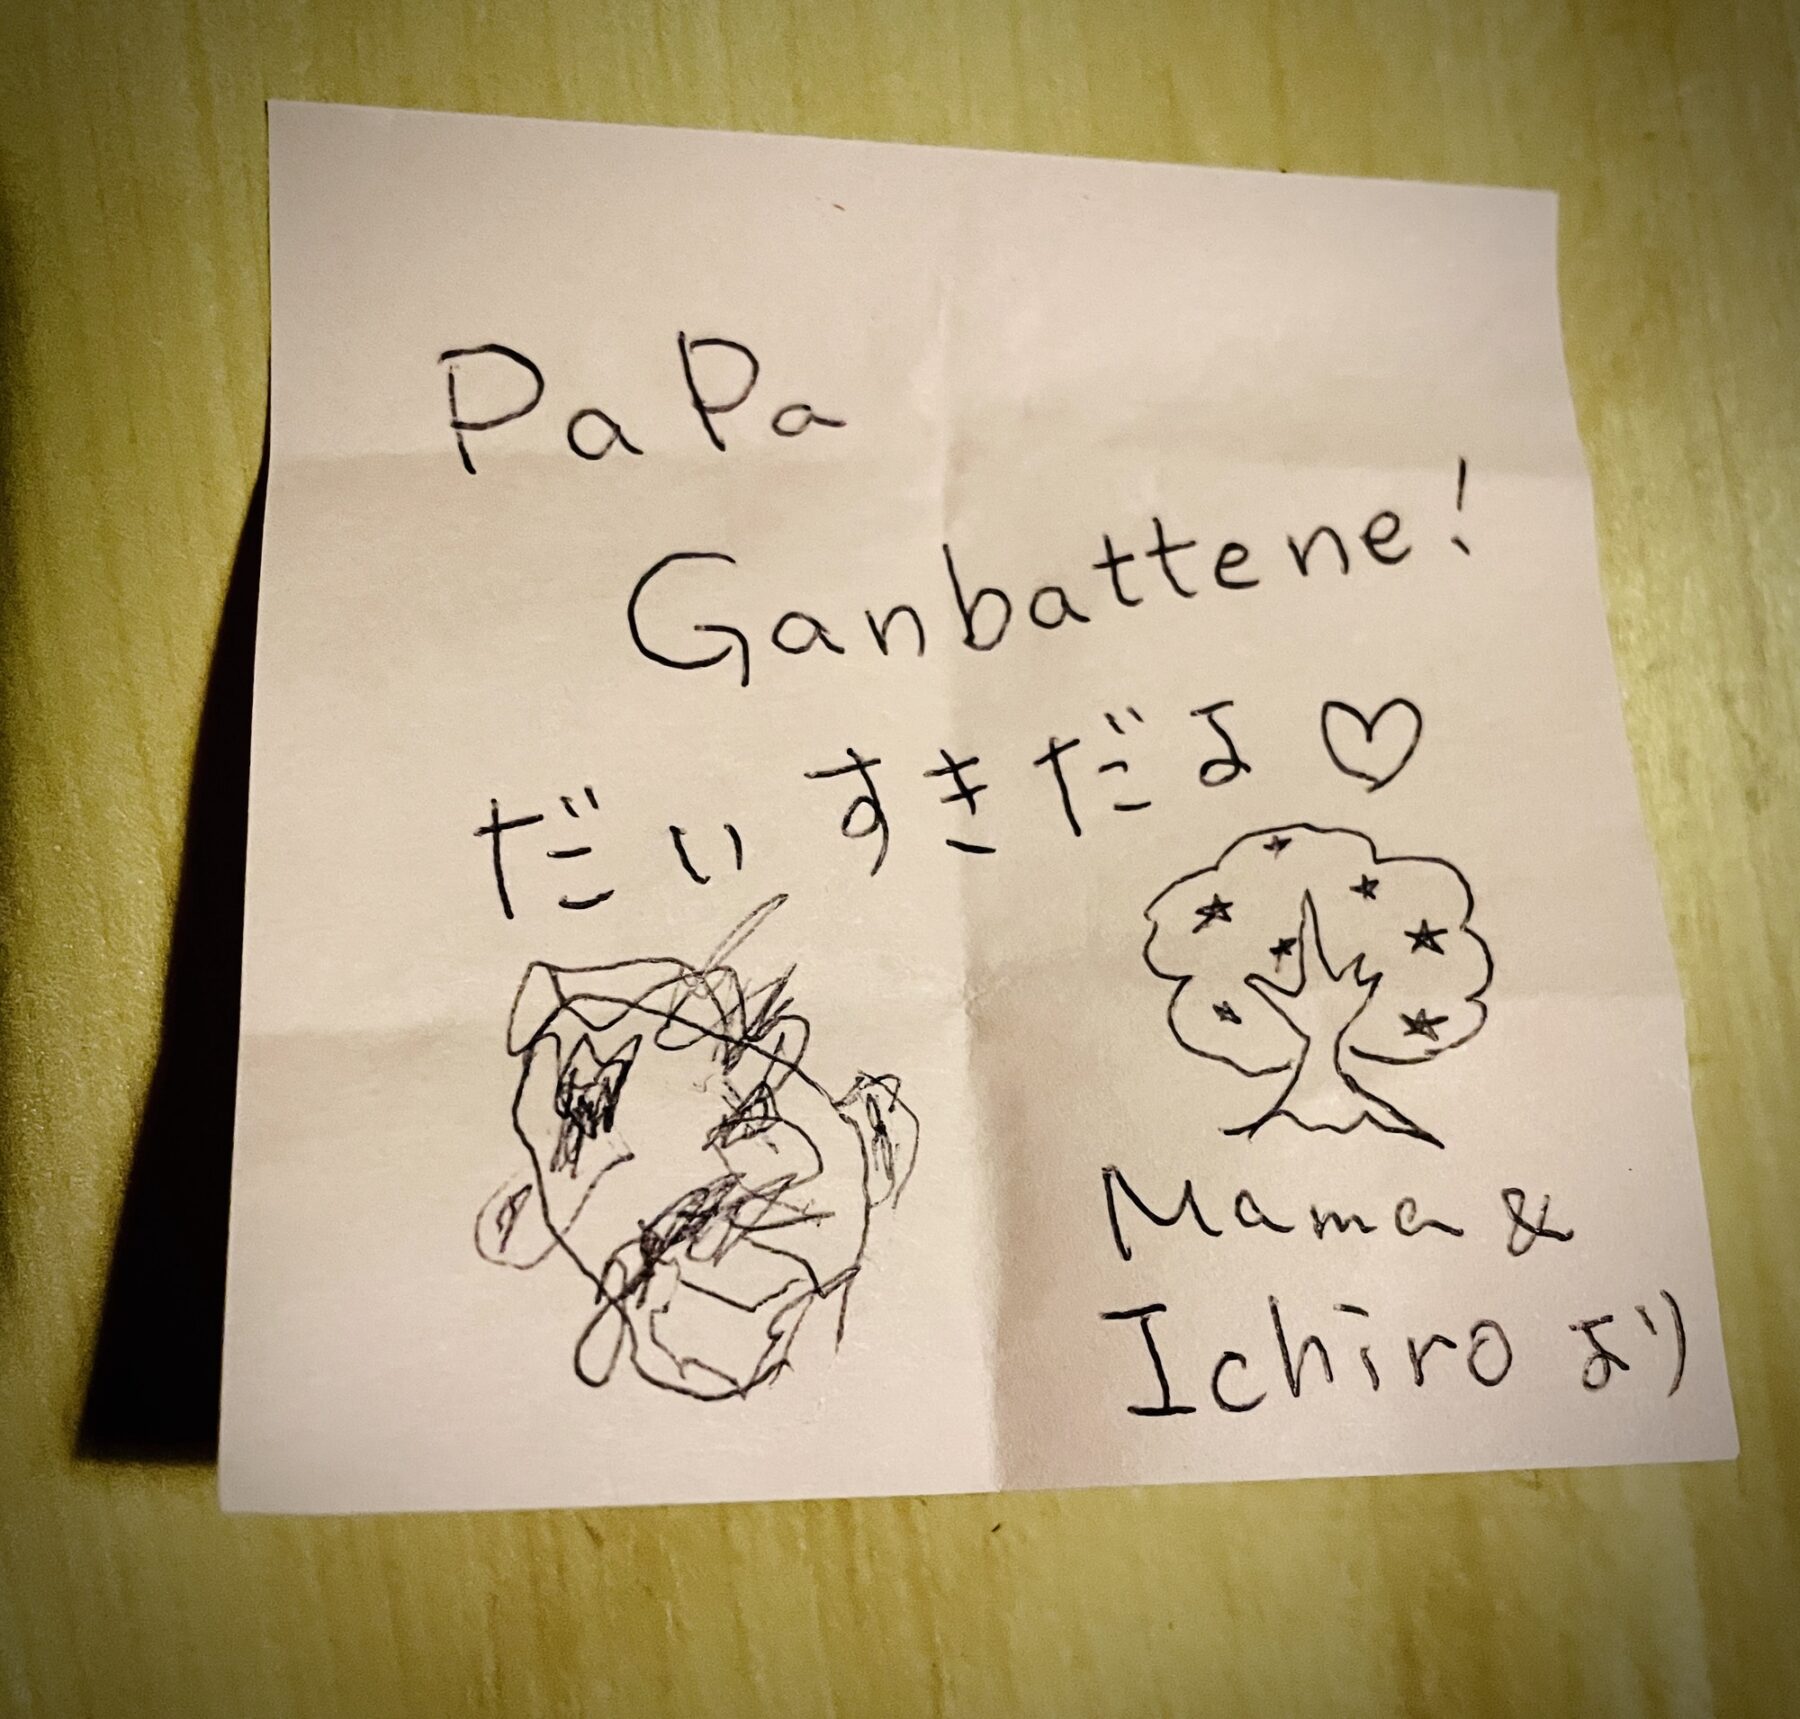 PaPa
Ganbattene!
だいすきだよ♡
Mama &
Ichiro より